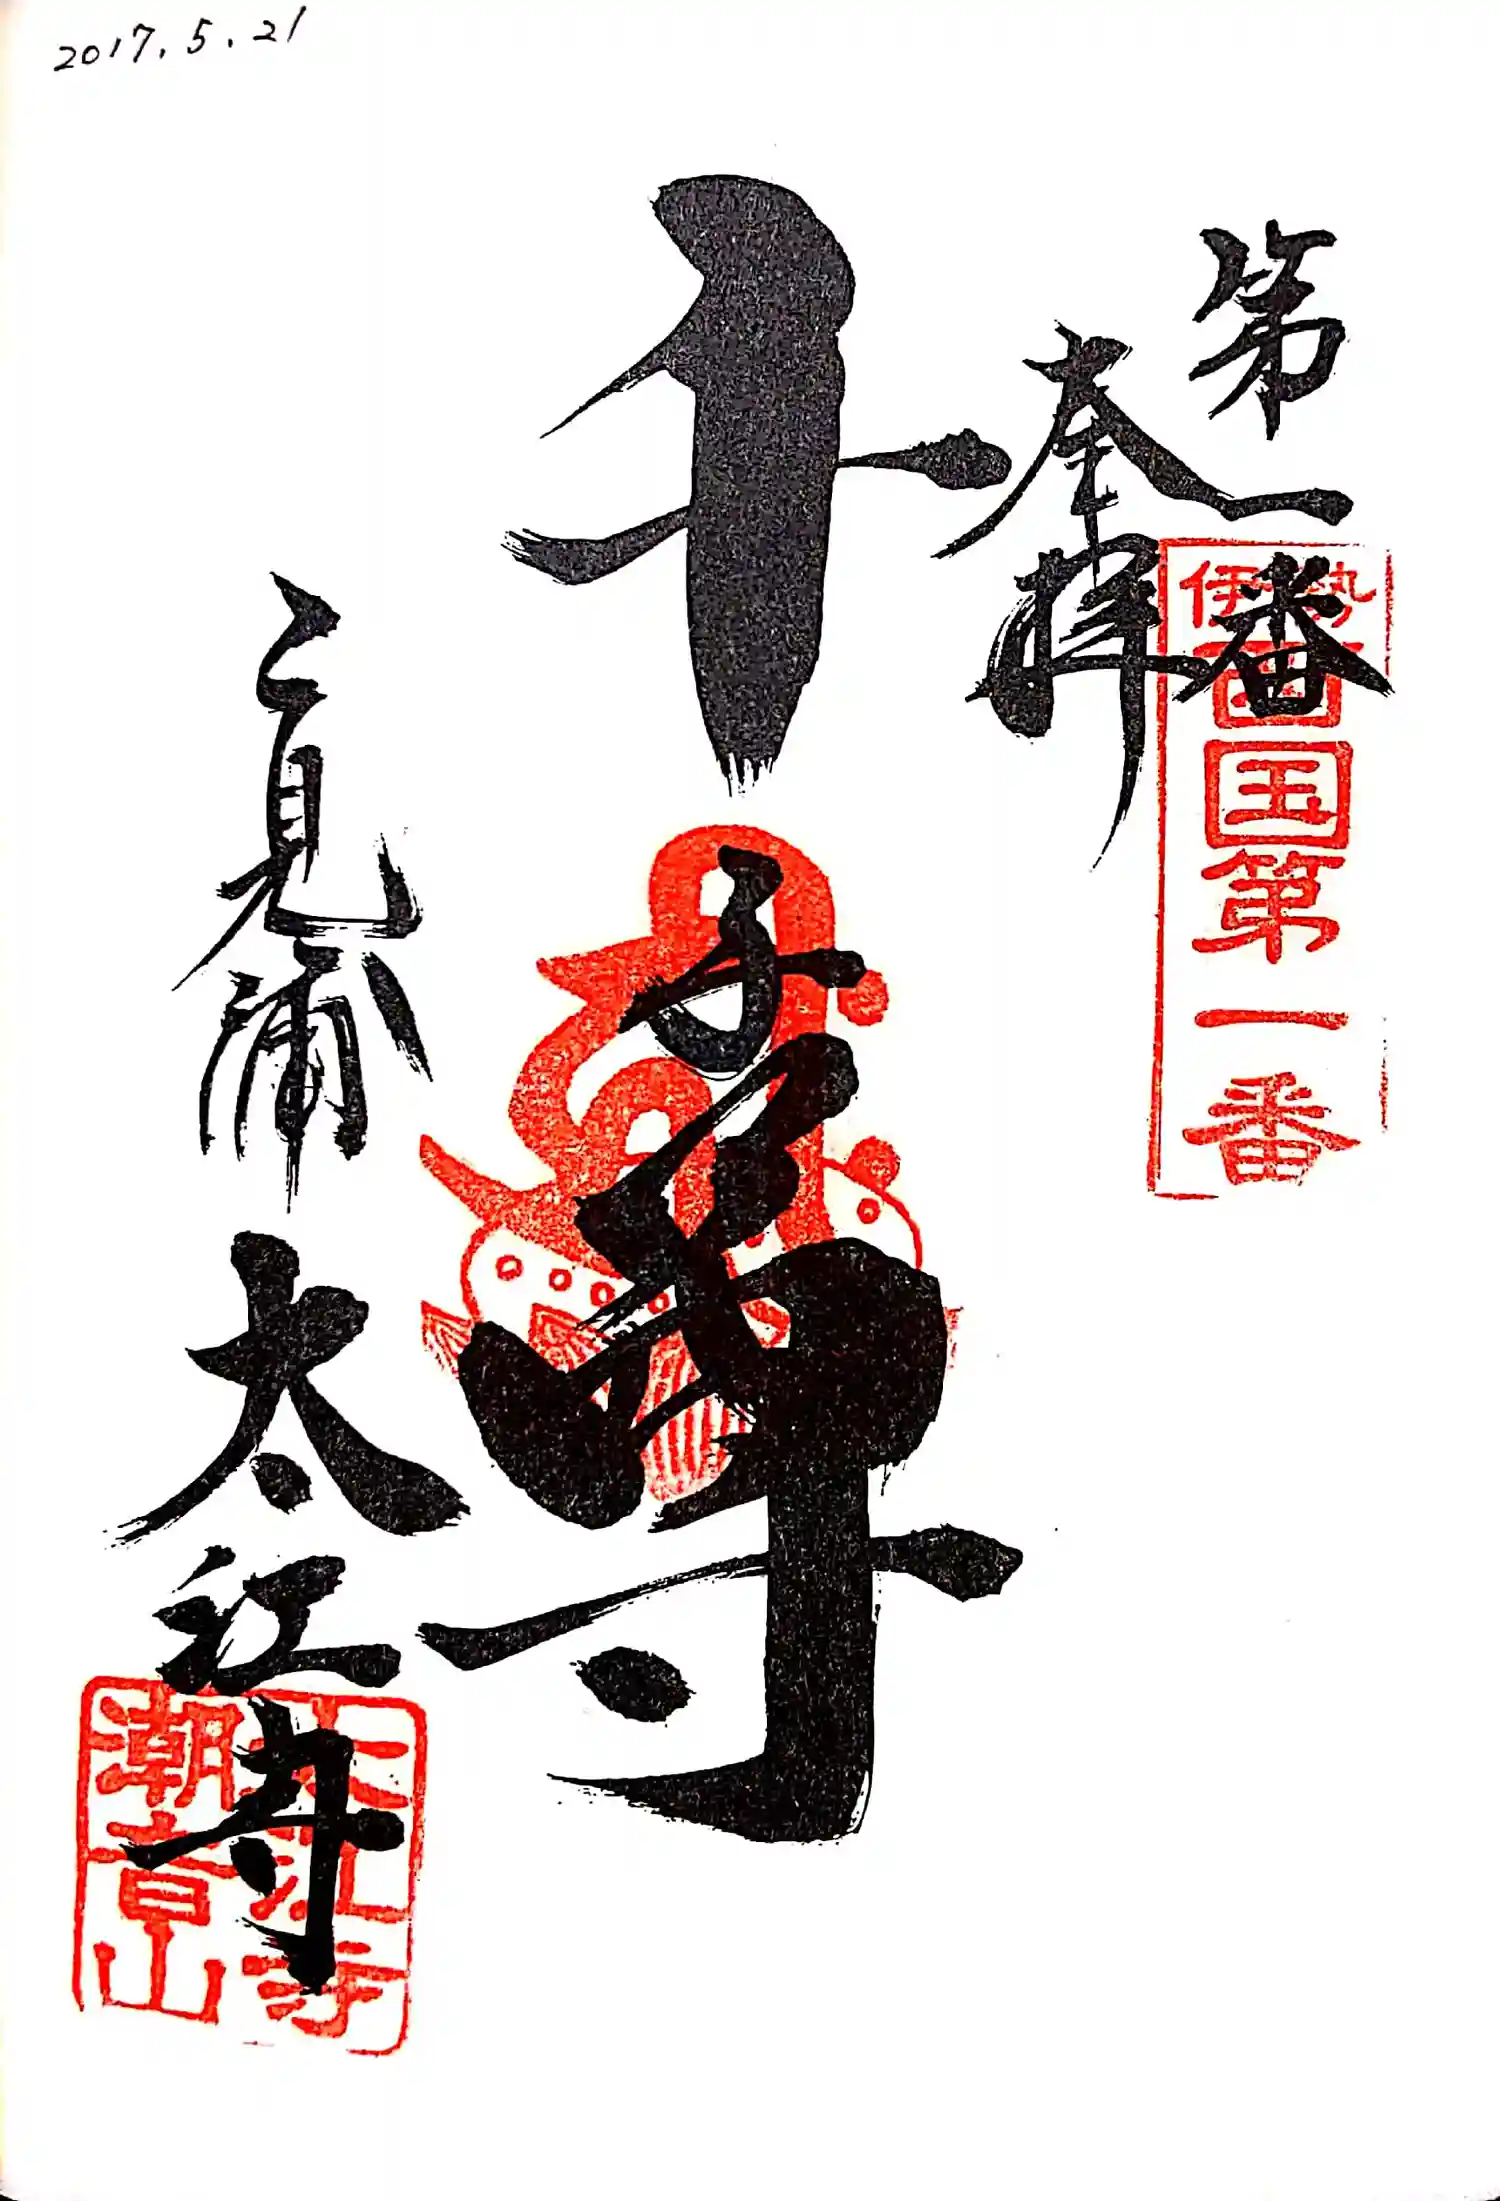 2017.5.21
第一番
奉拝
千手尊
二見浦
太江寺
伊勢西国第一番
太江寺
潮音山